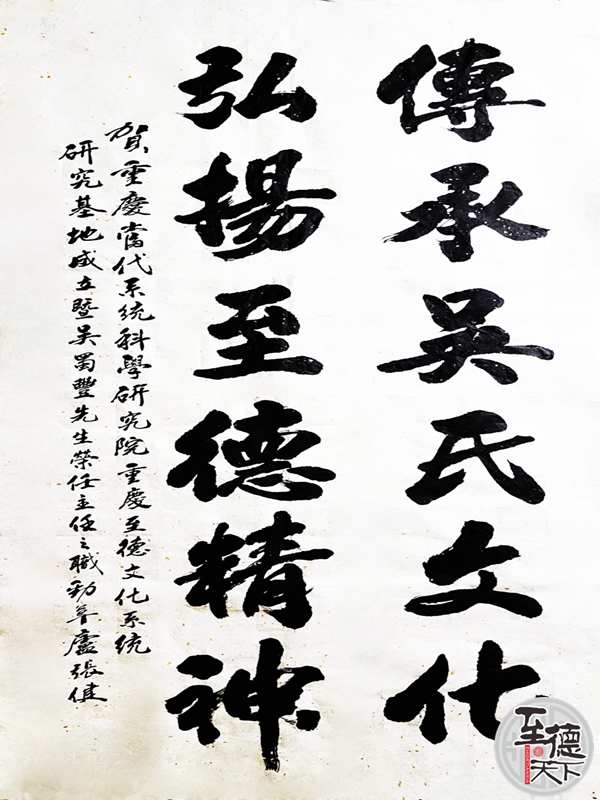 傳承吳氏文化
弘揚至德精神
賀重慶當代系统科學研究院重慶至德文化系统
研究基地成立暨吴蜀豐先生榮任主任之職勁草廬張健
至德天下